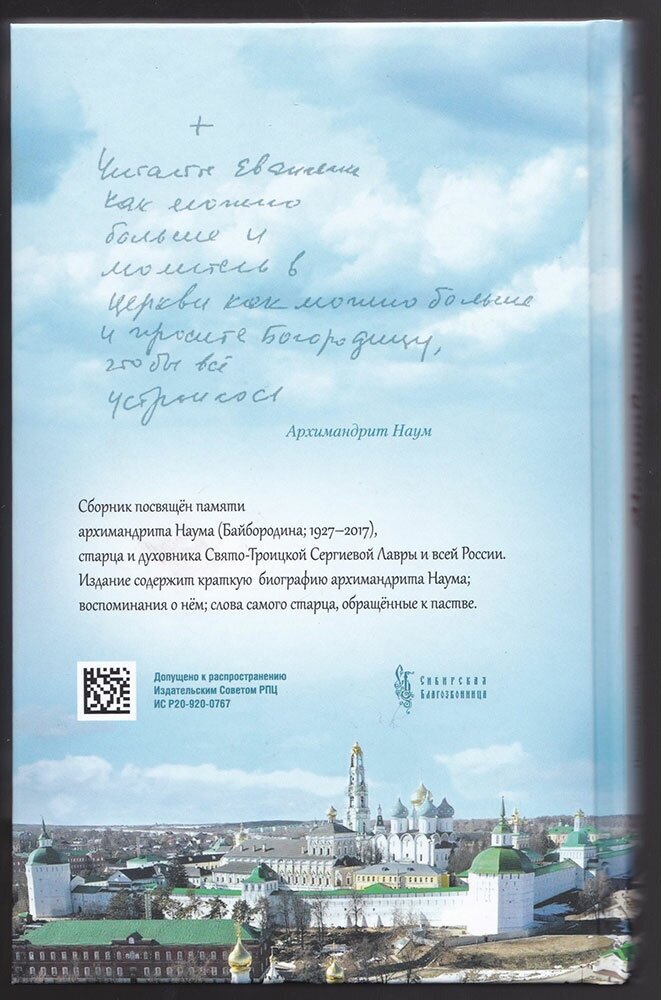 +
Читайте Евангелие
как можно
больше и
молитесь в
церкви как можно больше
и просите Богородицу,
чтобы всё
устроилось
Архимандрит Наум
Сборник посвящён памяти
архимандрита Наума (Байбородина; 1927–2017),
старца и духовника Свято-Троицкой Сергиевой Лавры и всей России.
Издание содержит краткую биографию архимандрита Наума;
воспоминания о нём; слова самого старца, обращённые к пастве.
Допущено к распространению
Издательским Советом РПЦ
ИС Р20-920-0767
Сибирская
Благозвонница